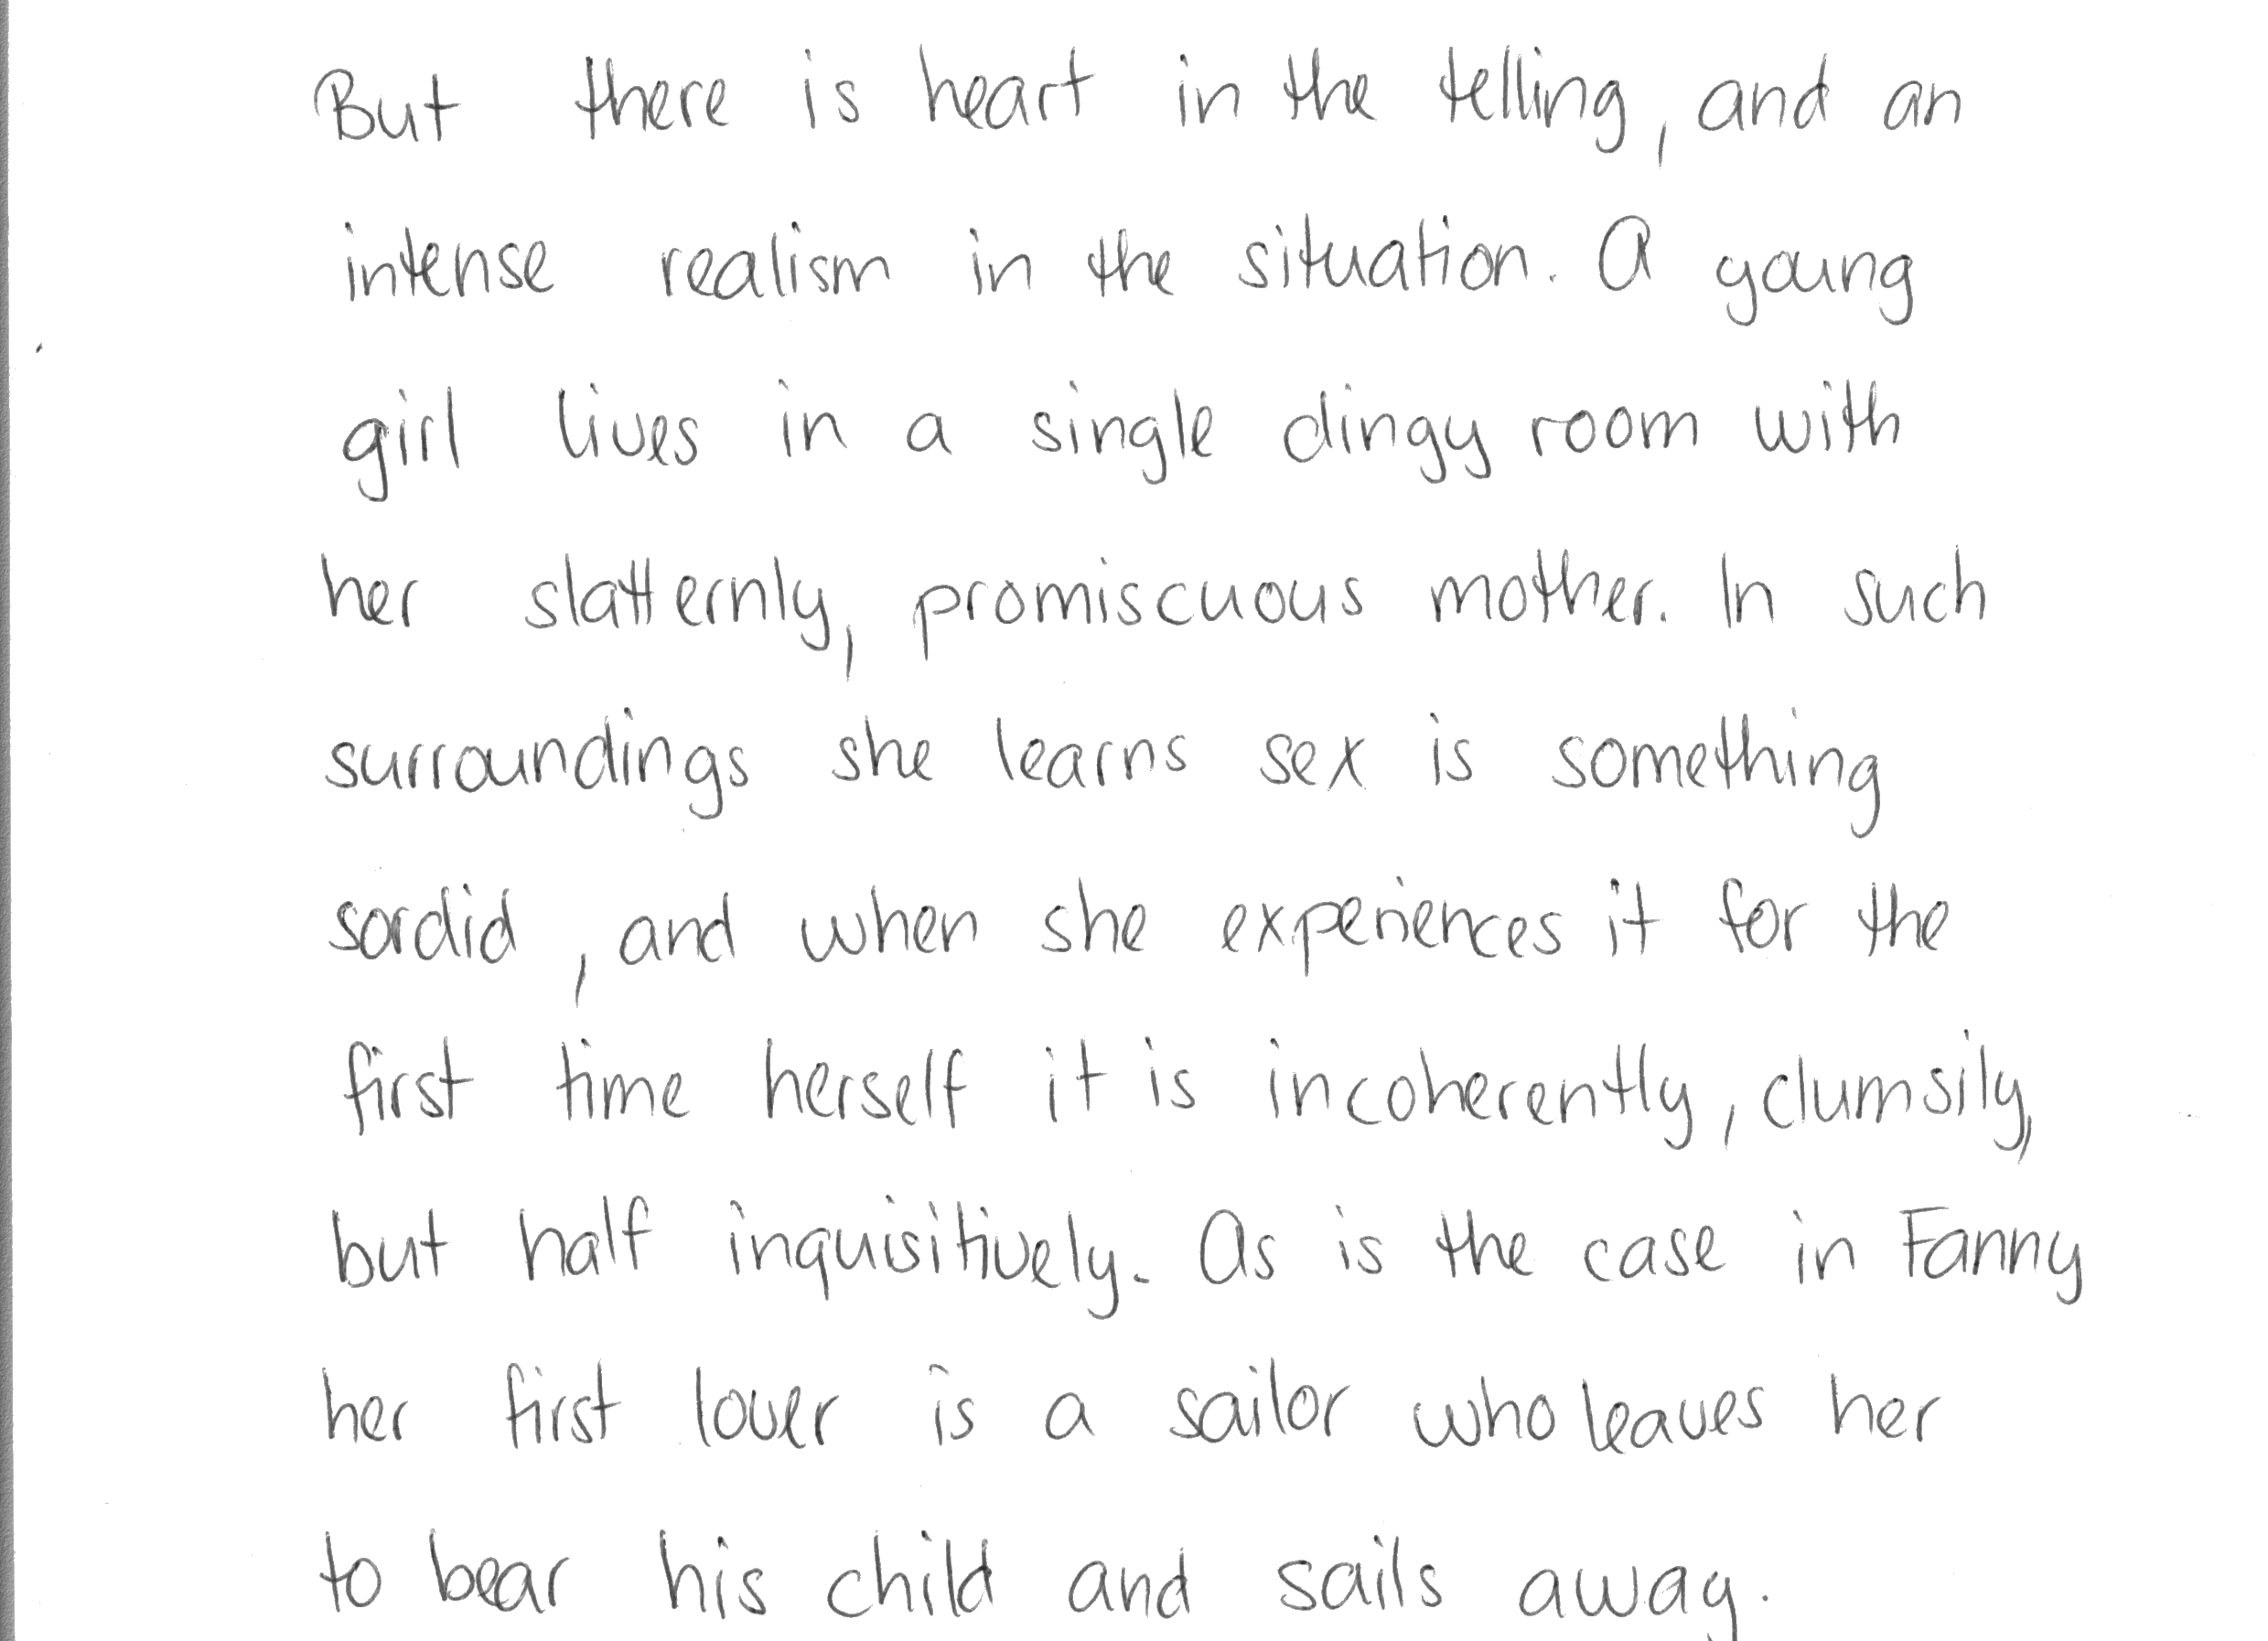 But there is heart in the telling, and an
intense realism in the situation. A young
girl lives in a single dingy room with
her slatternly, promiscuous mother. In such
surroundings she learns sex is something
sordid, and when she experiences it for the
first time herself it is incoherently, clumsily,
but half inquisitively. As is the case in Fanny
her first lover is a sailor who leaves her
to bear his child and sails away.